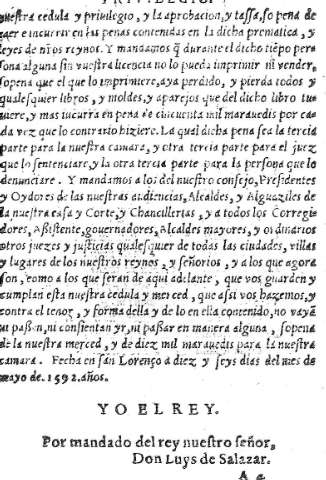 PRIVILEGIO.
nuestra cedula y priuilegio, y la aprobacion, y tassa, so pena de
caer e incurrir en las penas contenidas en la dicha prematica, y
leyes de nr̃os reynos. Y mandamos q̃ durante el dicho tiẽpo pers
sona alguna sin vuestra licencia no lo pueda imprimir ni vender,
sopena que el que lo imprimiere, aya perdido, y pierda todos y
qualesquier libros, y moldes, y aparejos que del dicho libro tu-
uiere, y mas incurra en pena de cincuenta mil marauedis por ca-
da vez que lo contrario hiziere. La qual dicha pena sea la tercia
parte para la nuestra camara, y otra tercia parte para el juez
que lo sentenciare, y la otra tercia parte para la persona que lo
denunciare. Y mandamos a los del nuestro consejo, Presidentes
y Oydores de las nuestras audiencias, Alcaldes, y Alguaziles de
la nuestra casa y Corte, y Chancillerias, y a todos los Corregi-
dores, Asistente, gouernadores, Alcaldes mayores, y ordinarios
otros juezes y justicias qualesquier de todas las ciudades, villas
y lugares de los nuestros reynos, y señorios, y a los que agora
son, como a los que seran de aqui adelante, que vos guarden y
cumplan esta nuestra cedula y merced, que assi vos hazemos, y
contra el tenor, y forma della y de lo en ella contenido, no vayã
ni passen, ni consientan yr, ni passar en manera alguna, sopena
de la nuestra merced, y de diez mil marauedis para la nuestra
camara. Fecha en san Lorenço a diez y seys dias del mes de
mayo de. 1592. años.
YO EL REY.
Por mandado del rey nuestro señor,
Don Luys de Salazar.